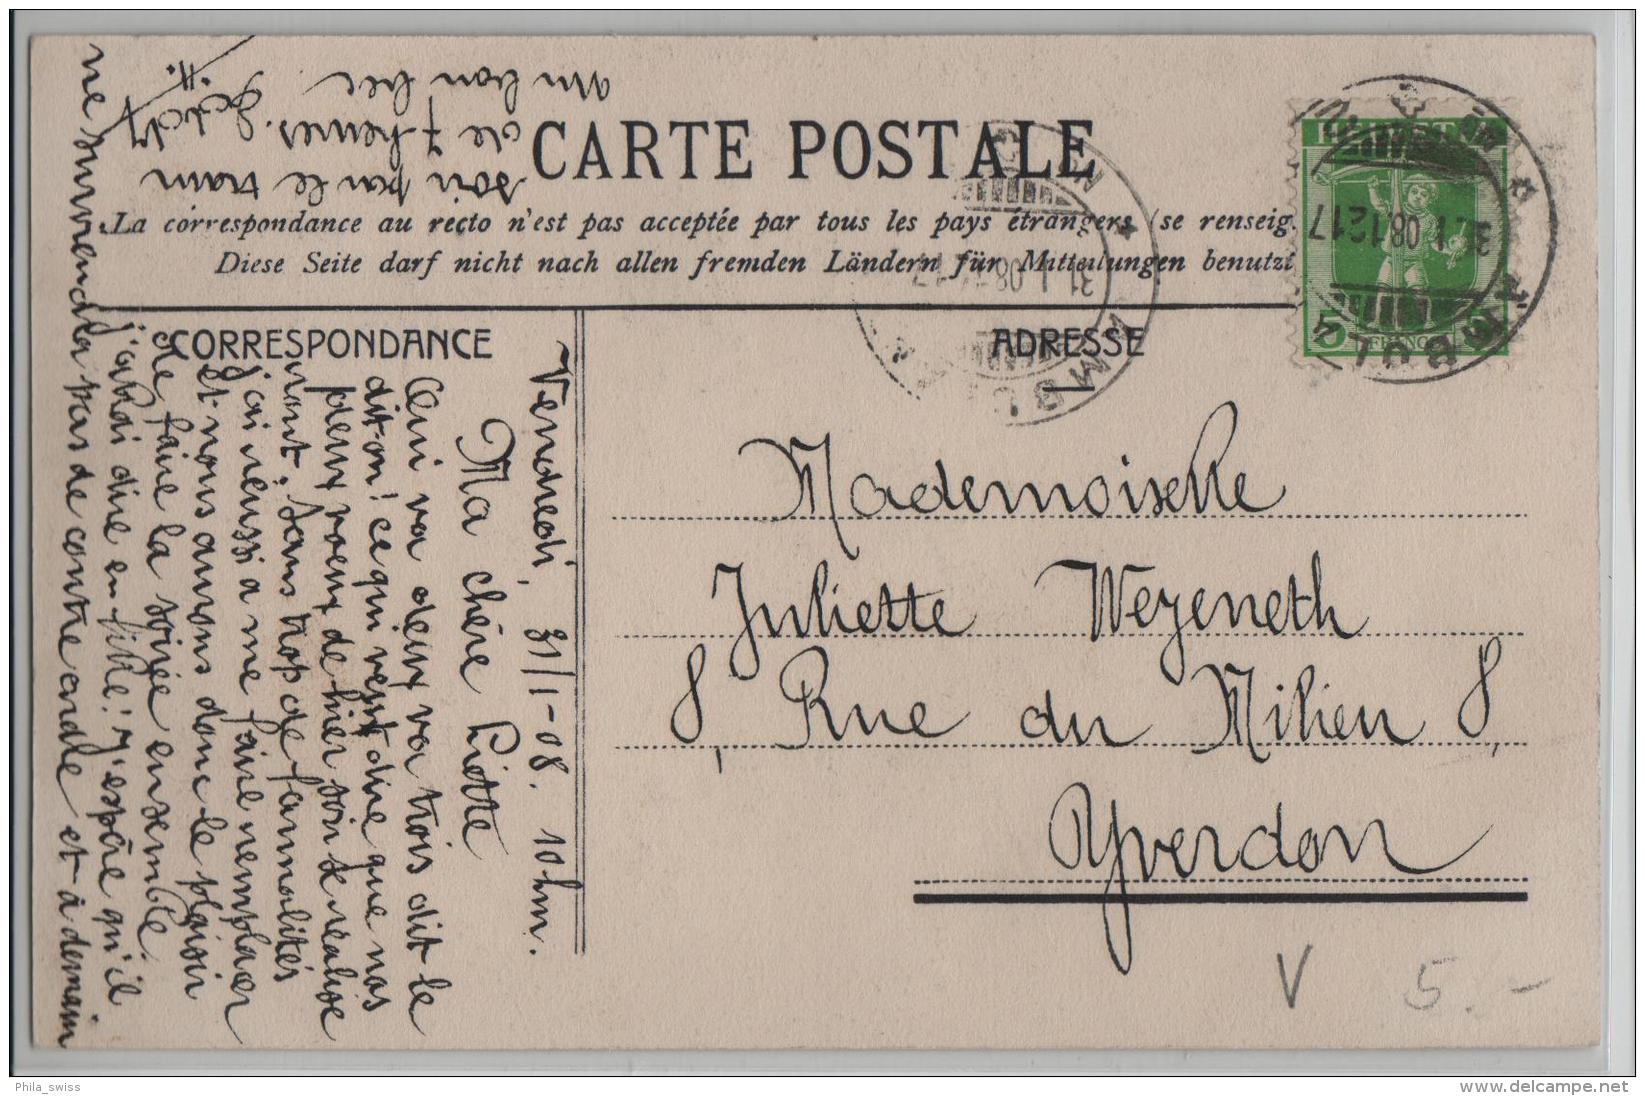 CARTE POSTALE
La correspondance au recto n'est pas acceptée par tous les pays étrangers (se renseig.
Diese Seite darf nicht nach allen fremden Ländern für Mitteilungen benutzt
CORRESPONDANCE
Vendredi, 31/1-08. 10hm.
Ma chère Liette
Qui va deux va trois dit le
dit-on! ce qui veut dire que nos
deux voeux de hier soir se réalise
ront. Sans trop de formalités
j'ai réussi a me faire remplacer
et nous aurons donc le plaisir
de faire la soirée ensemble.
j'allai dire en ville! J'espère qu'il
ne surviendra pas de contre ordre et à demain
soir par le train
de 7 heures.
un bon bec.
ADRESSE
Mademoiselle
Juliette Wezeneth
8, Rue du Milieu 8,
Yverdon
HELVETIA
5
FRANCO
31.I.08.-12
17
31.I.08.-
AMBUL
V 5.-
Phila_swiss
delcampe.net